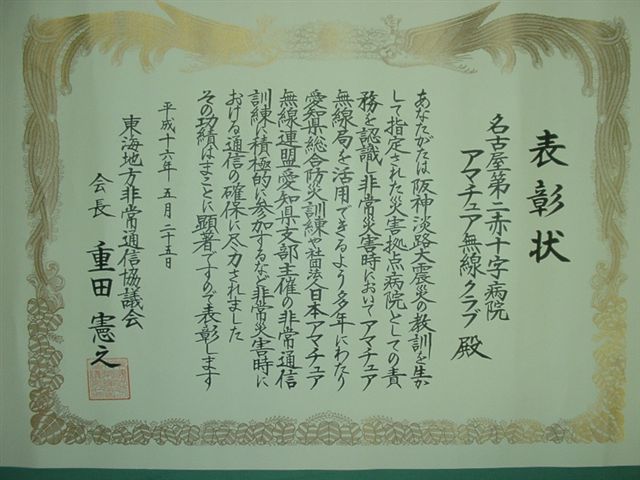 表彰状
名古屋第二赤十字病院
アマチュア無線クラブ 殿
あなたがたは阪神淡路大震災の教訓を生か
して指定された災害拠点病院としての責
務を認識し非常災害時においてアマチュア
無線局を活用できるよう多年にわたり
愛知県総合防災訓練や社団法人日本アマチュア
無線連盟愛知県支部主催の非常通信
訓練に積極的に参加するなど非常災害時に
おける通信の確保に尽力されました
その功績はまことに顕著ですので表彰します
平成十六年 五月 二十五日
東海地方非常通信協議会
会長 重田 憲之